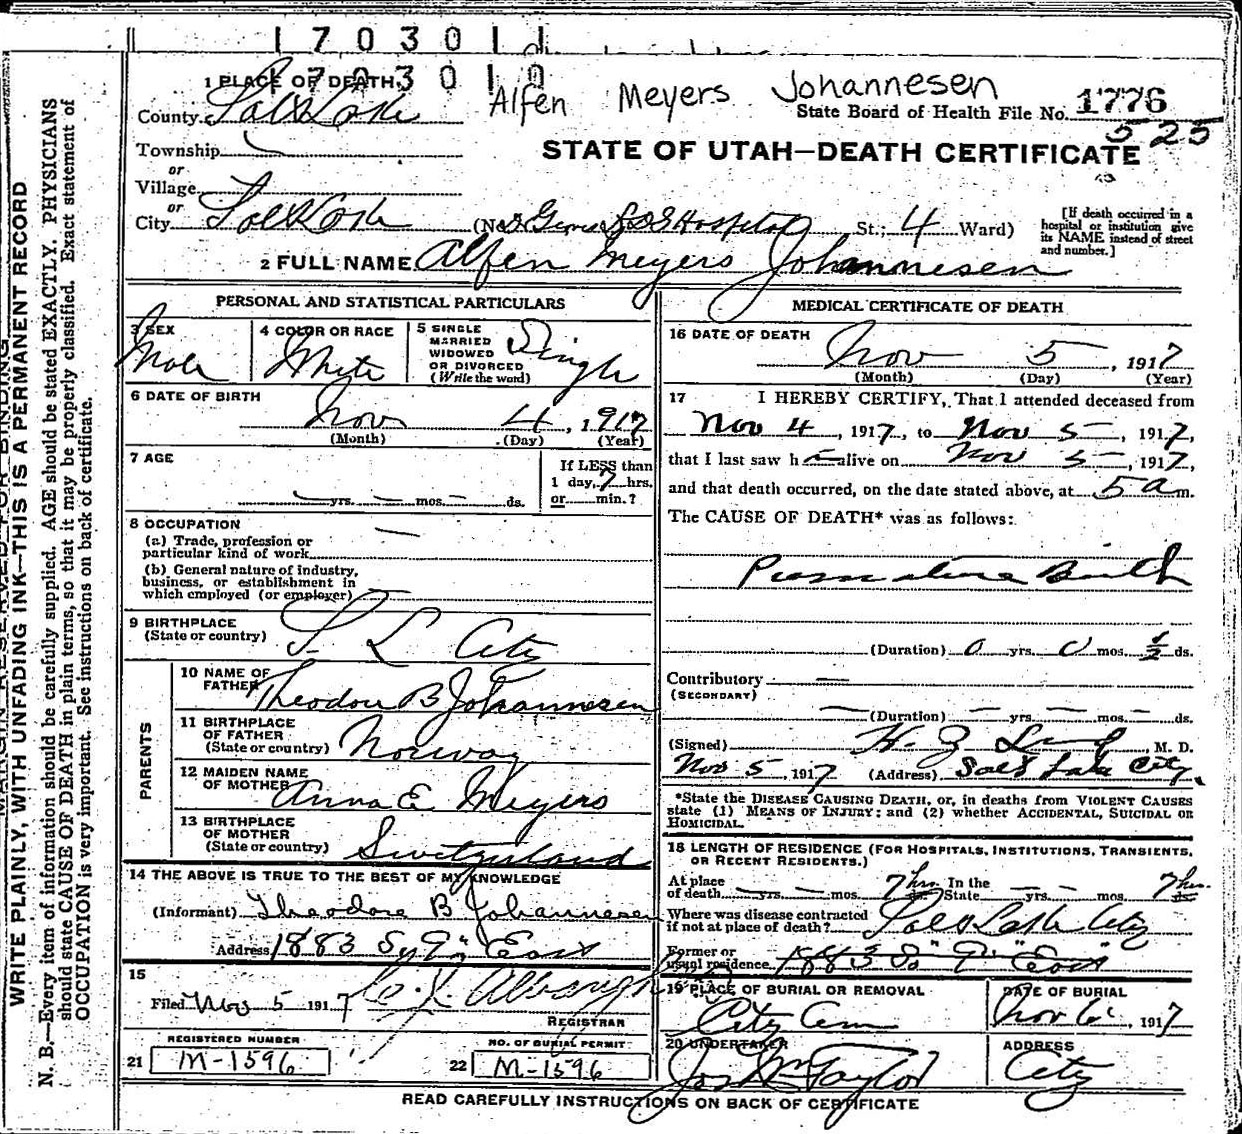 1703011
1703010
Alfen Meyers Johannesen
State Board of Health File No. 1776
525
STATE OF UTAH—DEATH CERTIFICATE
1 PLACE OF DEATH
County Salt Lake
Township
or
Village
or
City Salt Lake (No. LDS Hospital St.; 4 Ward)
[If death occurred in a hospital or institution give its NAME instead of street and number.]
2 FULL NAME Alfen Meyers Johannesen
PERSONAL AND STATISTICAL PARTICULARS
3 SEX
Male
4 COLOR OR RACE
White
5 SINGLE
MARRIED
WIDOWED
OR DIVORCED
(Write the word)
Single
6 DATE OF BIRTH
Nov 4, 1917
(Month) (Day) (Year)
7 AGE
yrs. mos. ds.
If LESS than
1 day, 7 hrs.
or min.?
8 OCCUPATION
(a) Trade, profession or
particular kind of work
(b) General nature of industry,
business, or establishment in
which employed (or employer)
9 BIRTHPLACE
(State or country) S. L. City
PARENTS
10 NAME OF
FATHER Theodore B Johannesen
11 BIRTHPLACE
OF FATHER
(State or country) Norway
12 MAIDEN NAME
OF MOTHER Anna E Meyers
13 BIRTHPLACE
OF MOTHER
(State or country) Switzerland
14 THE ABOVE IS TRUE TO THE BEST OF MY KNOWLEDGE
(Informant) Theodore B Johannesen
Address 1883 So 9" East
15
Filed Nov 5 1917
REGISTRAR
REGISTERED NUMBER
21 M-1596
NO. OF BURIAL PERMIT
22 M-1596
MEDICAL CERTIFICATE OF DEATH
16 DATE OF DEATH
Nov 5, 1917
(Month) (Day) (Year)
17 I HEREBY CERTIFY, That I attended deceased from
Nov 4, 1917, to Nov 5, 1917,
that I last saw h alive on Nov 5, 1917,
and that death occurred, on the date stated above, at 5 a m.
The CAUSE OF DEATH* was as follows:
Premature Birth
(Duration) 0 yrs. 0 mos. 1/2 ds.
Contributory —
(SECONDARY)
(Duration) — yrs. — mos. — ds.
(Signed) H. Z. Lund, M. D.
Nov 5, 1917 (Address) Salt Lake City.
*State the DISEASE CAUSING DEATH, or, in deaths from VIOLENT CAUSES
state (1) MEANS OF INJURY; and (2) whether ACCIDENTAL, SUICIDAL OR
HOMICIDAL.
18 LENGTH OF RESIDENCE (FOR HOSPITALS, INSTITUTIONS, TRANSIENTS,
OR RECENT RESIDENTS.)
At place
of death — yrs. — mos. 7 hrs. In the
State — yrs. — mos. 7 hrs. ds.
Where was disease contracted
if not at place of death? Salt Lake City
Former or
usual residence 1883 So" 9" East"
19 PLACE OF BURIAL OR REMOVAL
City Cem
DATE OF BURIAL
Nov 6, 1917
20 UNDERTAKER
Jos Wm Taylor
ADDRESS
City
READ CAREFULLY INSTRUCTIONS ON BACK OF CERTIFICATE
MARGIN RESERVED FOR BINDING
WRITE PLAINLY, WITH UNFADING INK—THIS IS A PERMANENT RECORD
N. B.—Every item of information should be carefully supplied. AGE should be stated EXACTLY. PHYSICIANS
should state CAUSE OF DEATH in plain terms, so that it may be properly classified. Exact statement of
OCCUPATION is very important. See instructions on back of certificate.